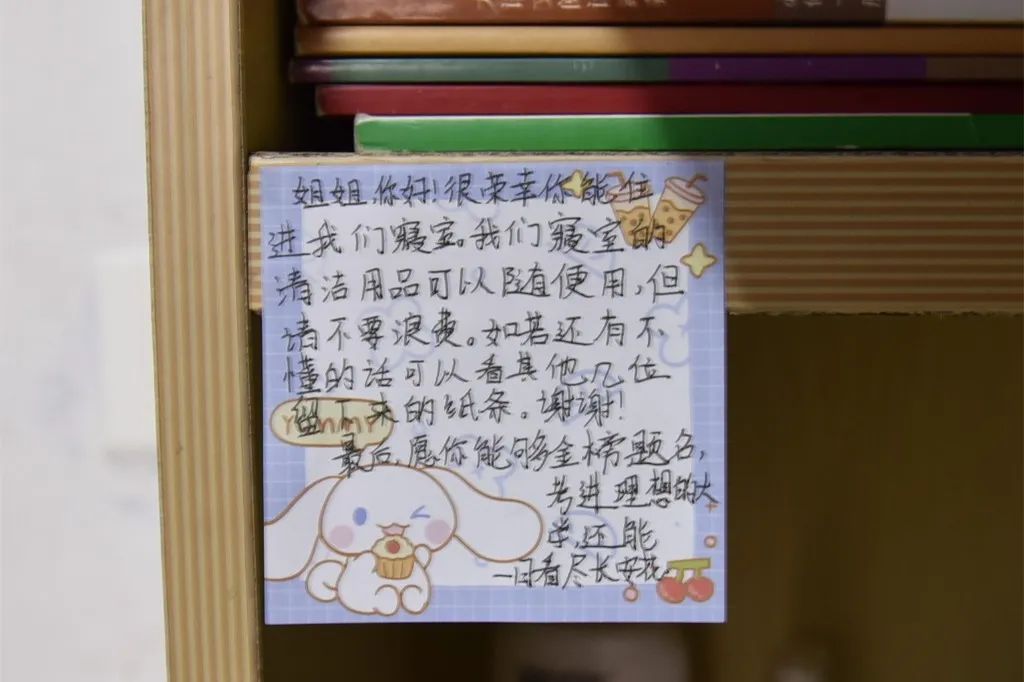 姐姐,你好!很荣幸你能住
进我们寝室。我们寝室的
清洁用品可以随便用,但
请不要浪费。如若还有不
懂的话可以看其他几位
留下来的纸条。谢谢!
最后,愿你能够金榜题名,
考进理想的大
学,还能
一日看尽长安花。